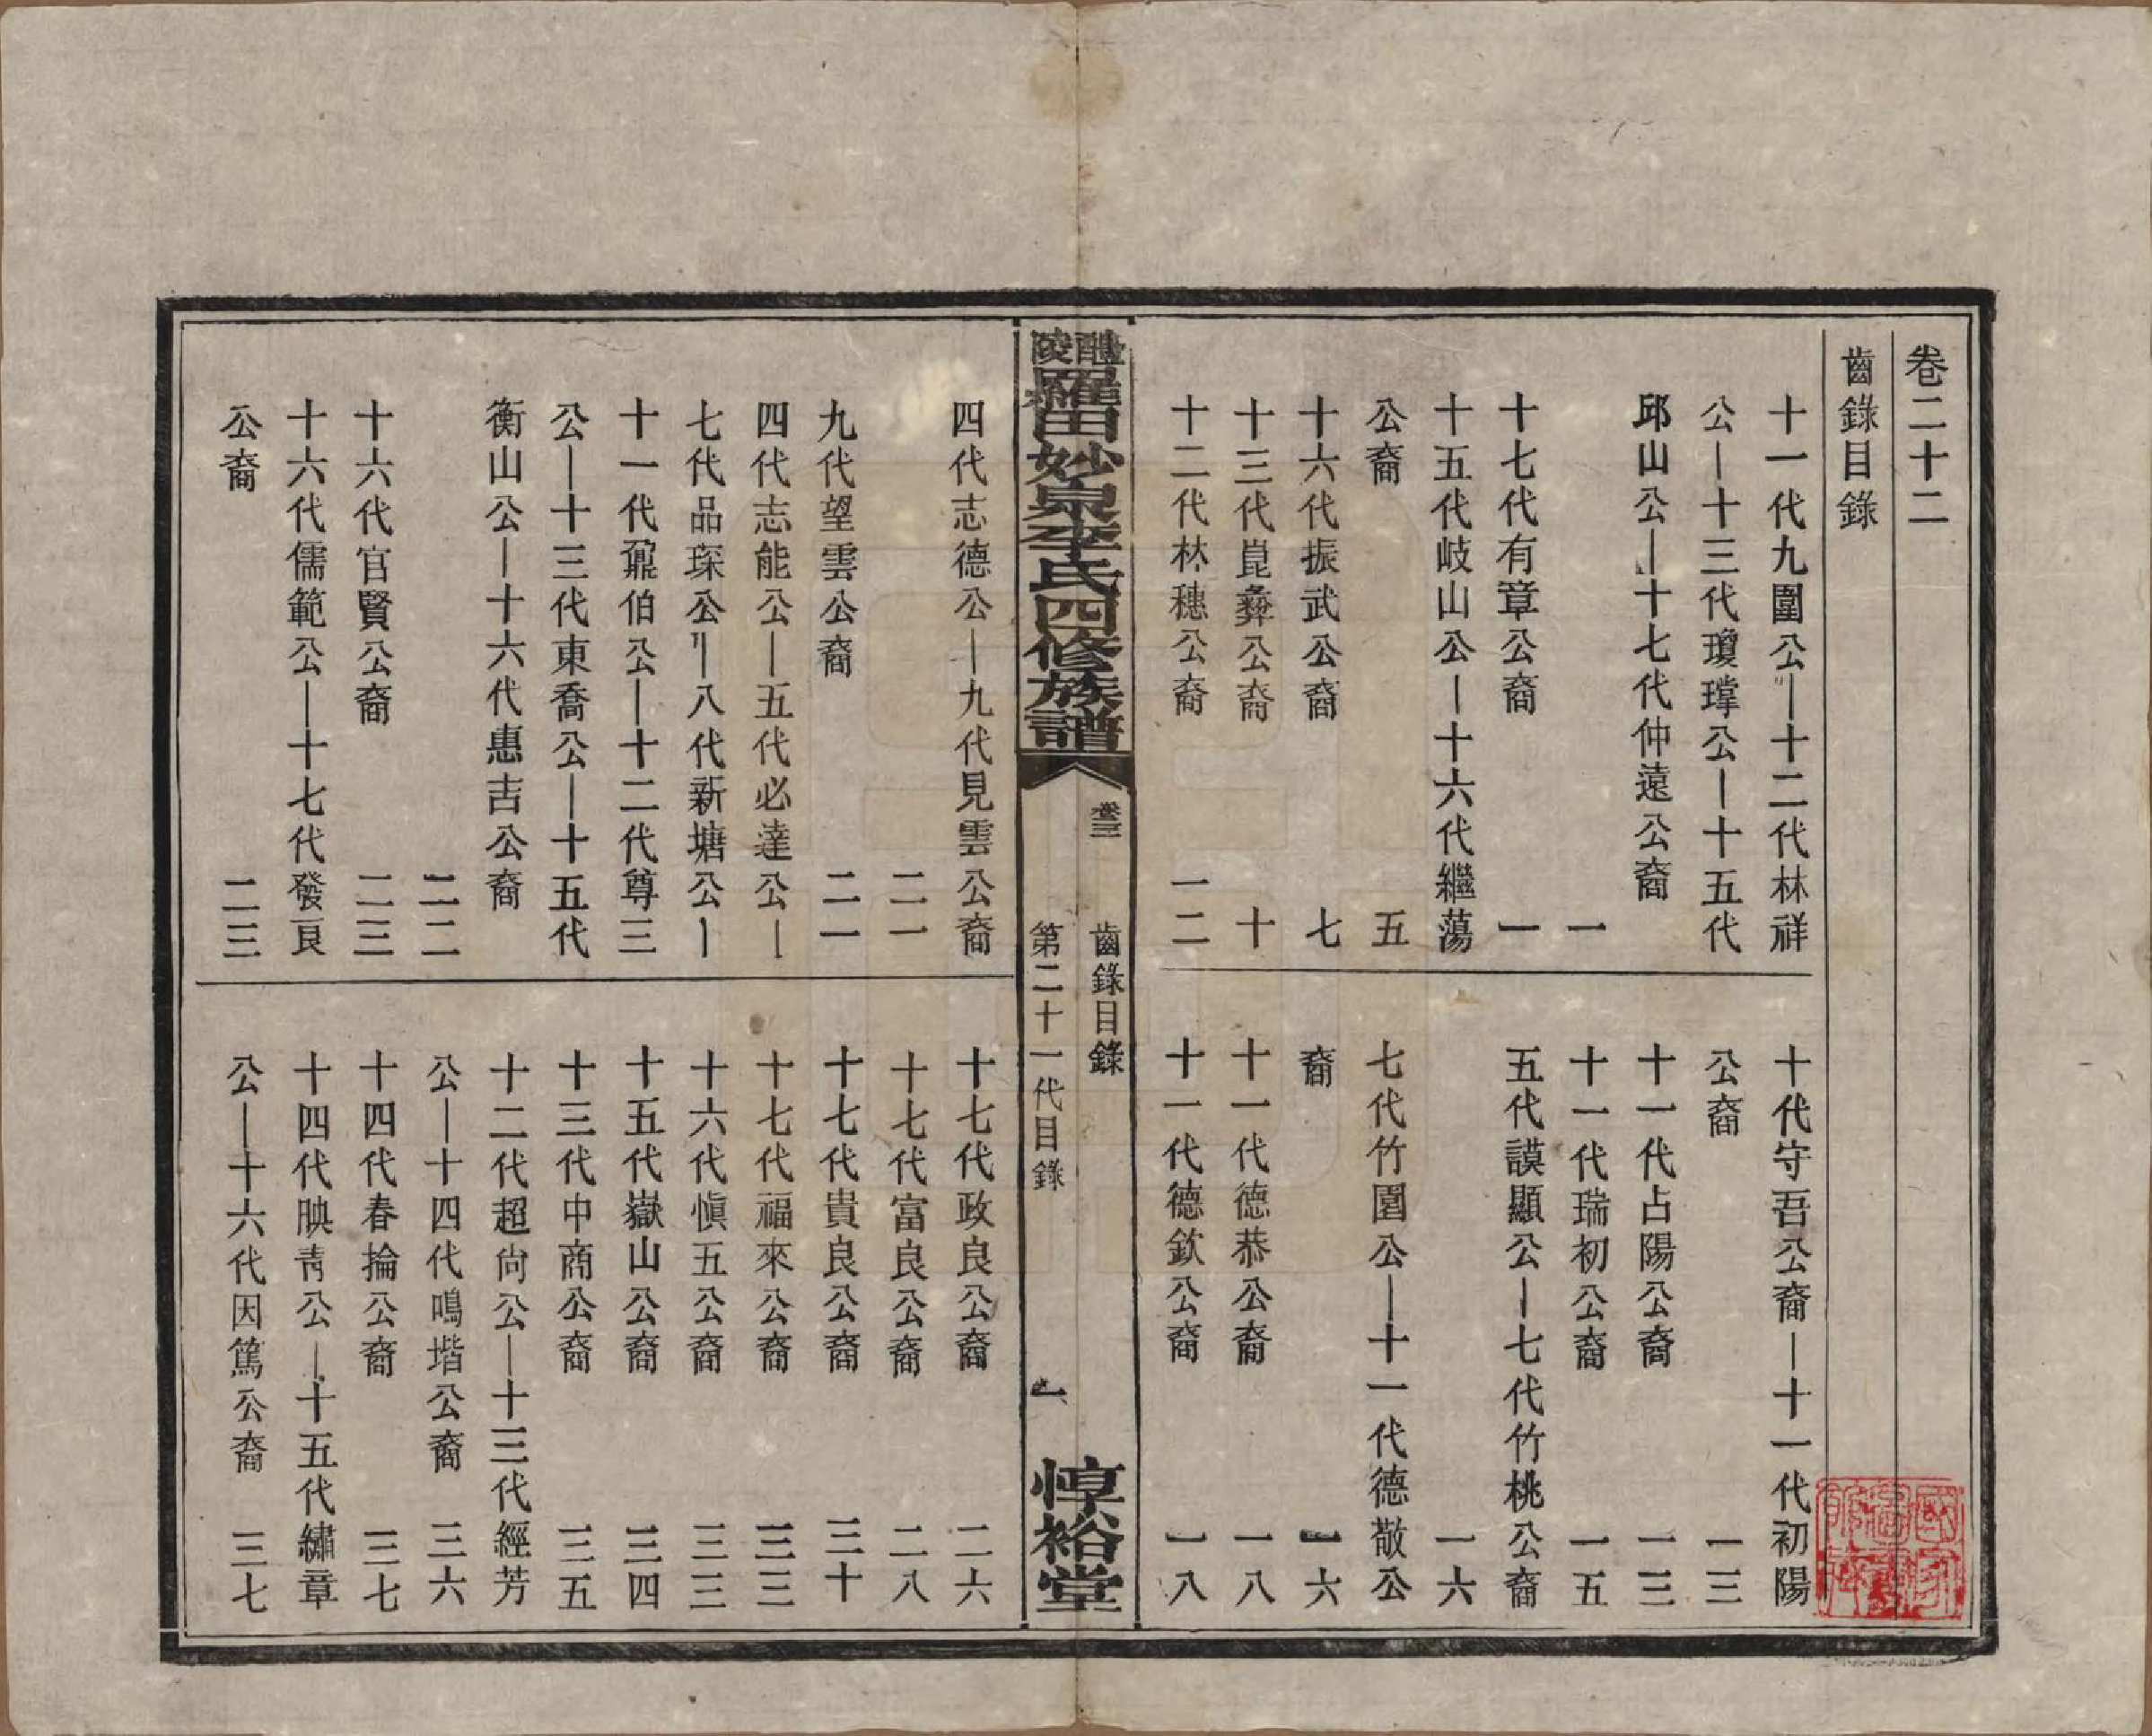 卷二十二
齒錄目錄
十一代九圍公—十二代林祥
公—十三代瓊璋公—十五代
邱山公—十七代仲遠公裔
一
十七代有章公裔　一
十五代岐山公—十六代繼蕩
公裔　五
十六代振武公裔　七
十三代崑彝公裔　十
十二代林穗公裔　一二
十代守吾公裔—十一代初陽
公裔　一三
十一代占陽公裔　一三
十一代瑞初公裔　一五
五代謨顯公—七代竹桃公裔
一六
七代竹園公—十一代德敬公
裔　一六
十一代德恭公裔　一八
十一代德欽公裔　一八
醴陵羅田妙泉李氏四修族譜
齒錄目錄
第二十一代目錄
一
惇裕堂
四代志德公—九代見雲公裔
二一
九代望雲公裔　二一
四代志能公—五代必達公—
七代品琛公—八代新塘公—
十一代鼐伯公—十二代尊三
公—十三代東喬公—十五代
衡山公—十六代惠吉公裔
二二
十六代官賢公裔　二三
十六代儒範公—十七代發良
公裔　二三
十七代政良公裔　二六
十七代富良公裔　二八
十七代貴良公裔　三十
十七代福來公裔　三三
十六代慎五公裔　三三
十五代嶽山公裔　三四
十三代中商公裔　三五
十二代超尚公—十三代經芳
公—十四代鳴堦公裔　三六
十四代春掄公裔　三七
十四代映青公—十五代繡章
公—十六代因篤公裔　三七